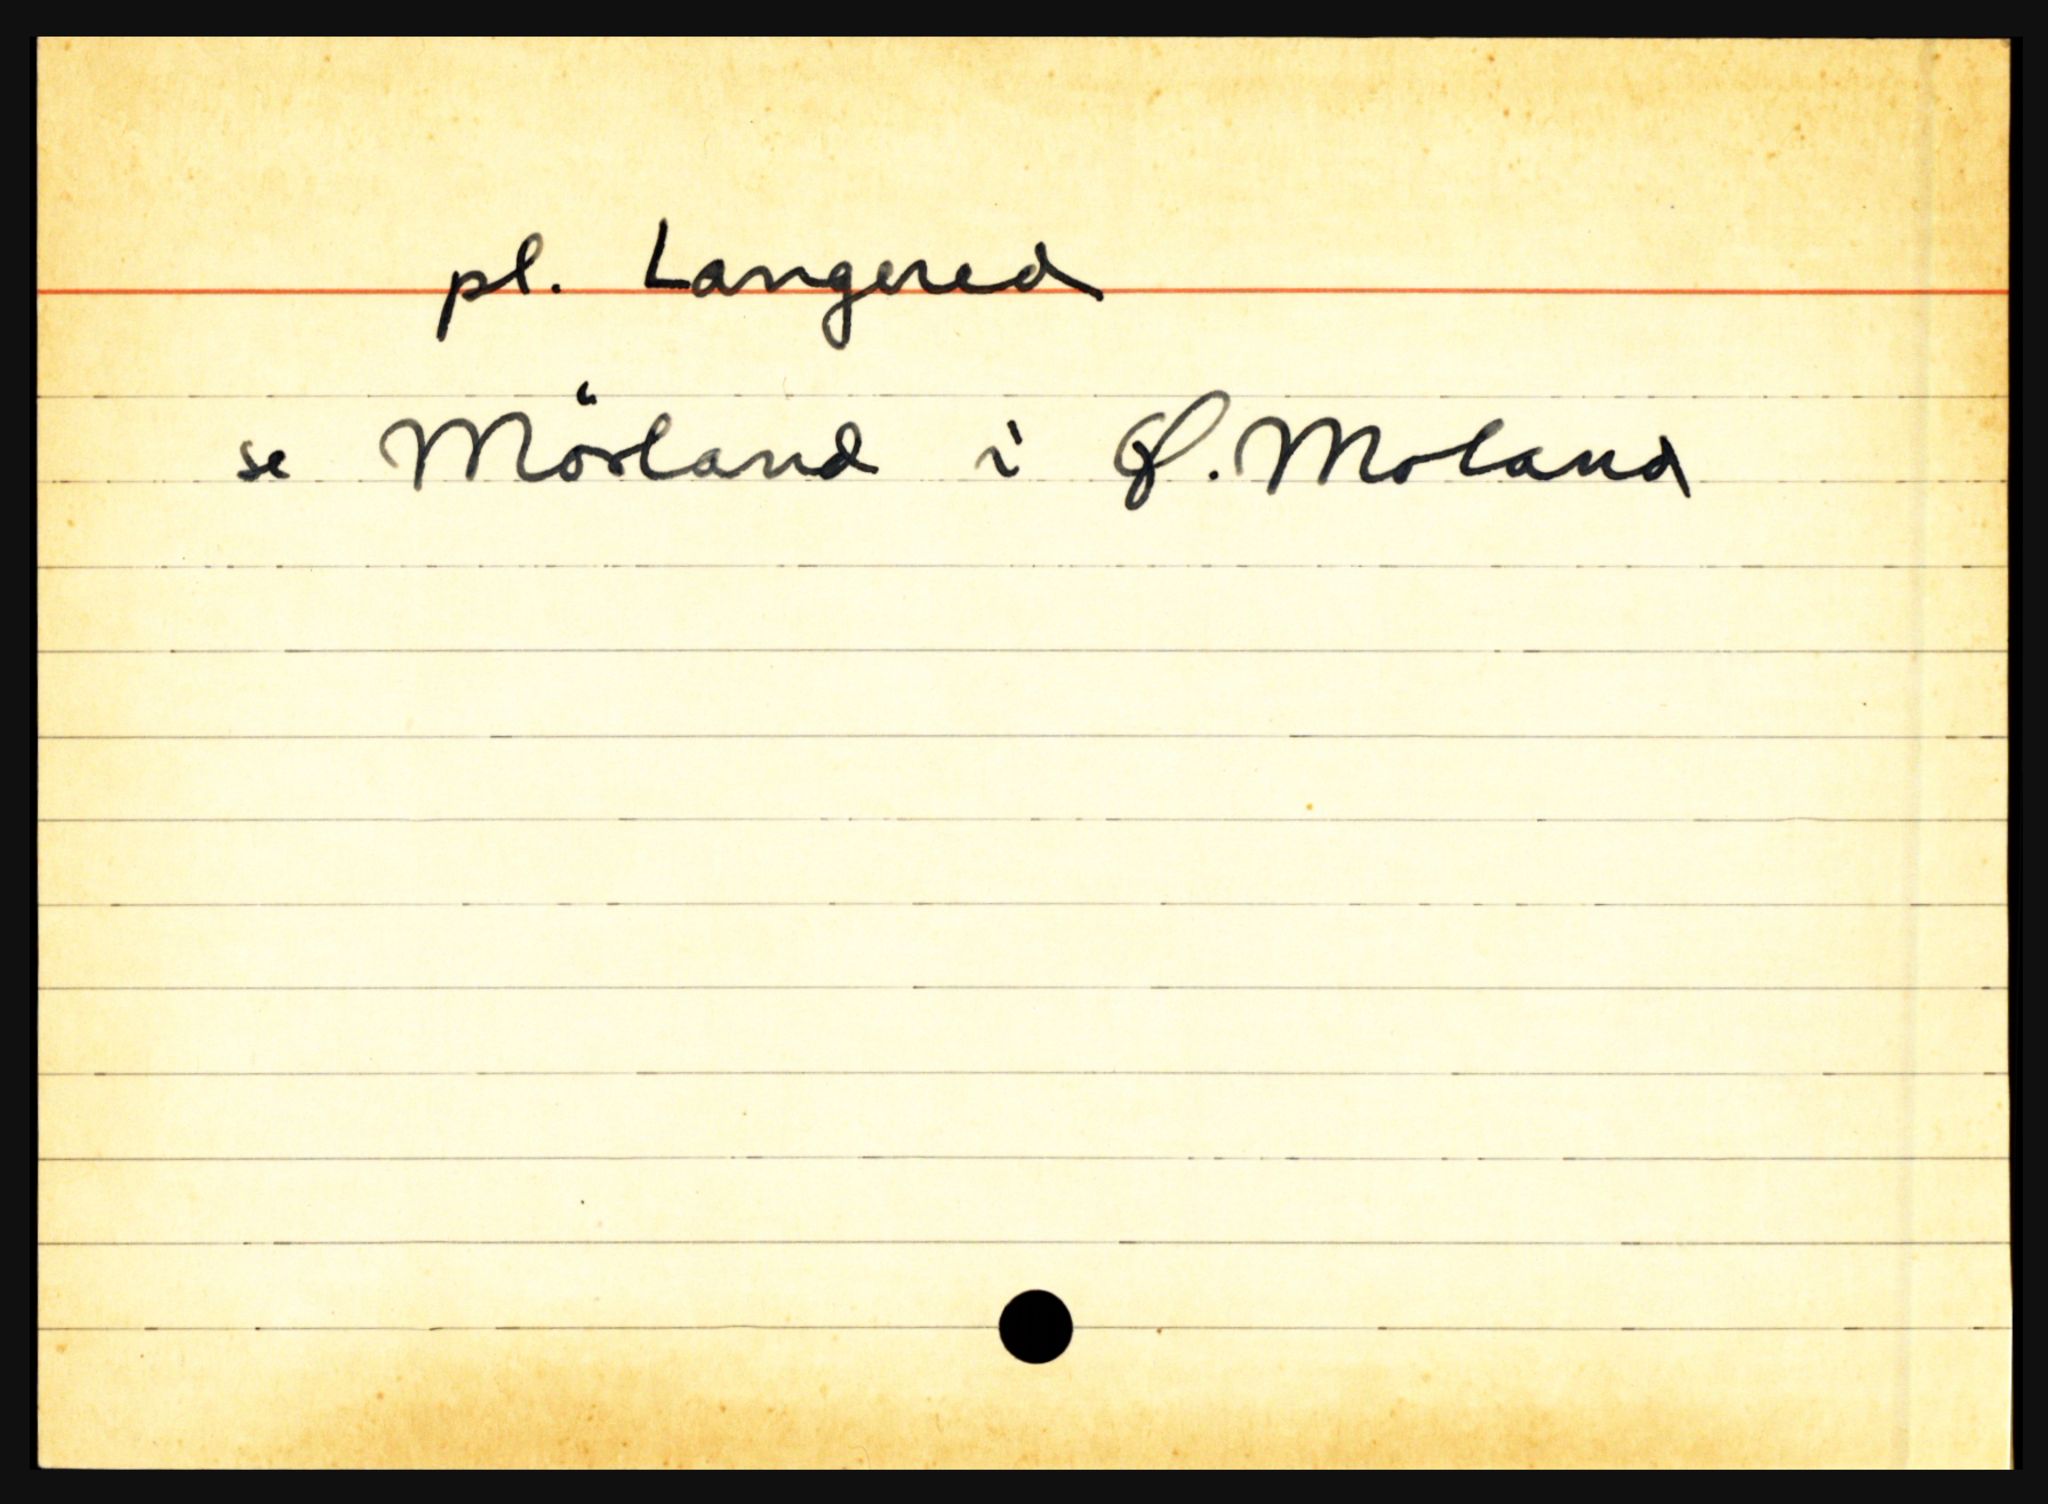 pl. Langered
se Mörland i Ø. Moland